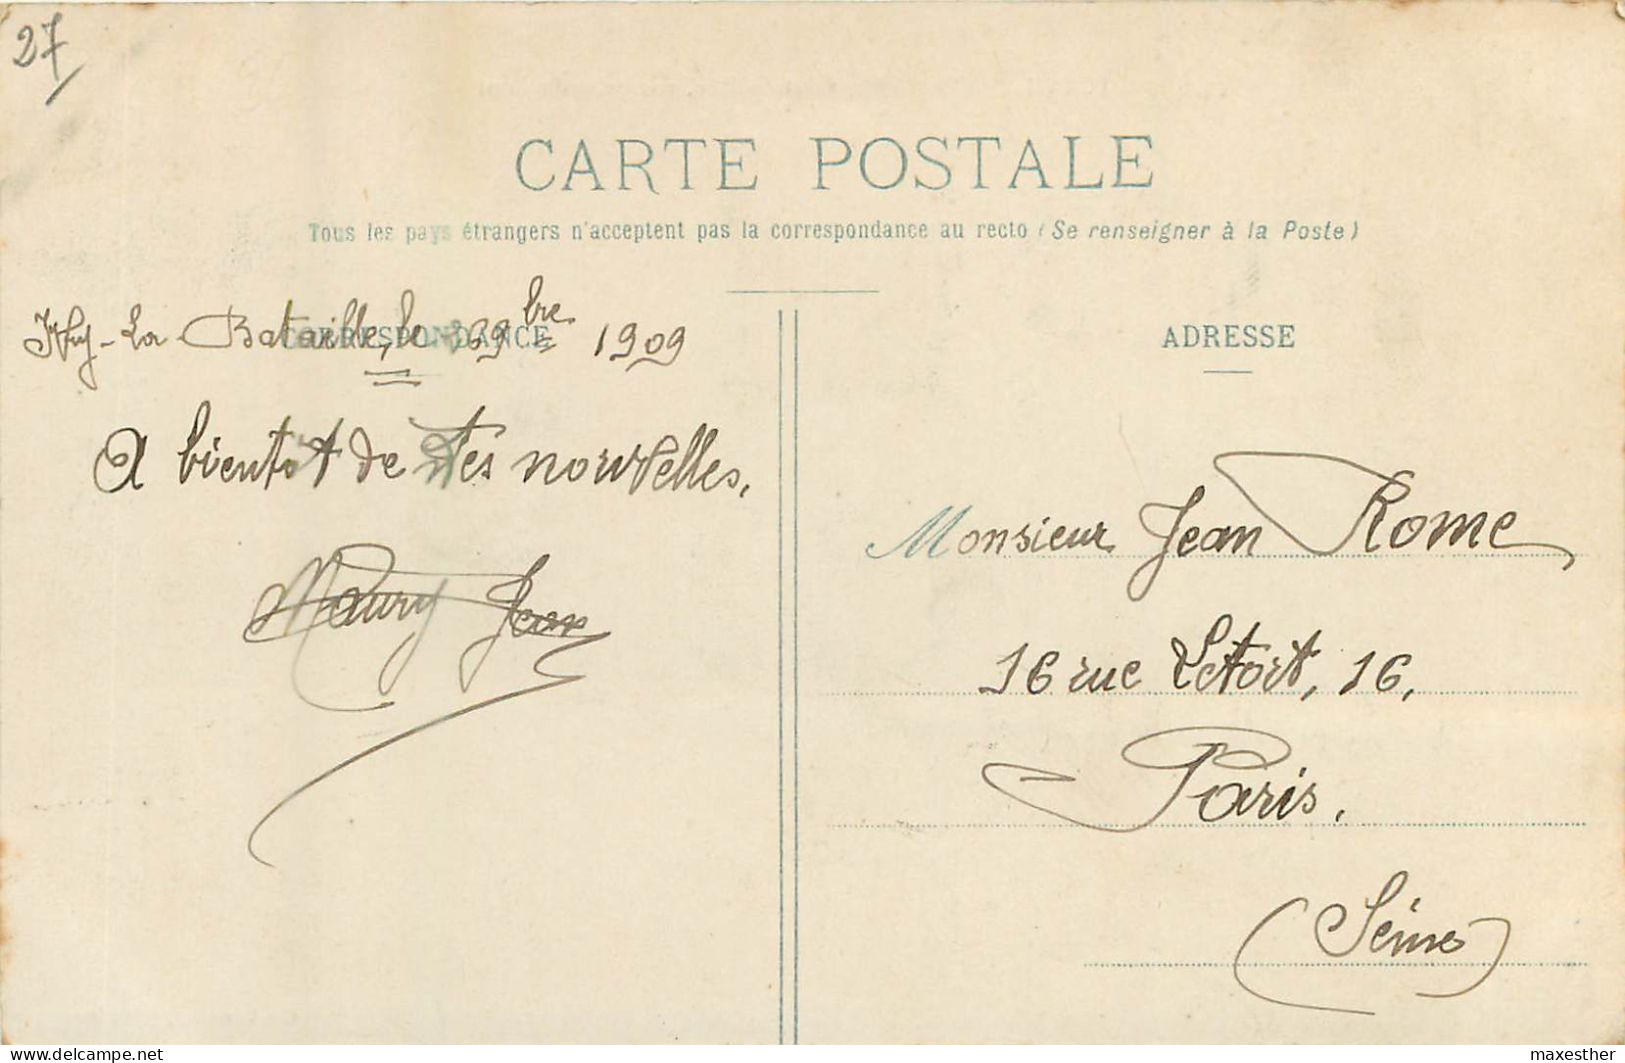 27
CARTE POSTALE
Tous les pays étrangers n'acceptent pas la correspondance au recto (Se renseigner à la Poste)
Ivry-La Bataille, le 9bre 1909
CORRESPONDANCE
ADRESSE
A bientôt de tes nouvelles.
Maury Jean
Monsieur Jean Rome
16 rue Letort, 16,
Paris.
(Seine)
maxesther